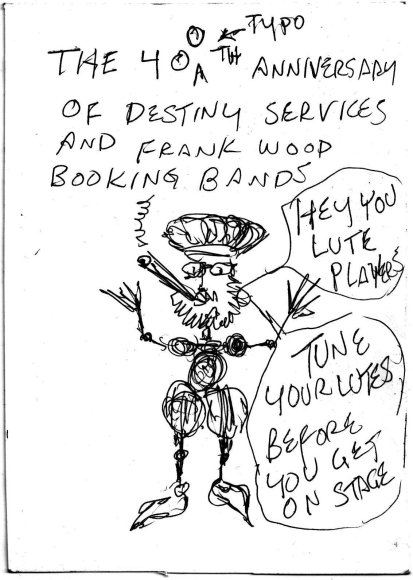 0 ← TYPO
THE 40^TH ANNIVERSARY
OF DESTINY SERVICES
AND FRANK WOOD
BOOKING BANDS
HEY YOU
LUTE
PLAYERS
TUNE
YOUR LUTES
BEFORE
YOU GET
ON STAGE